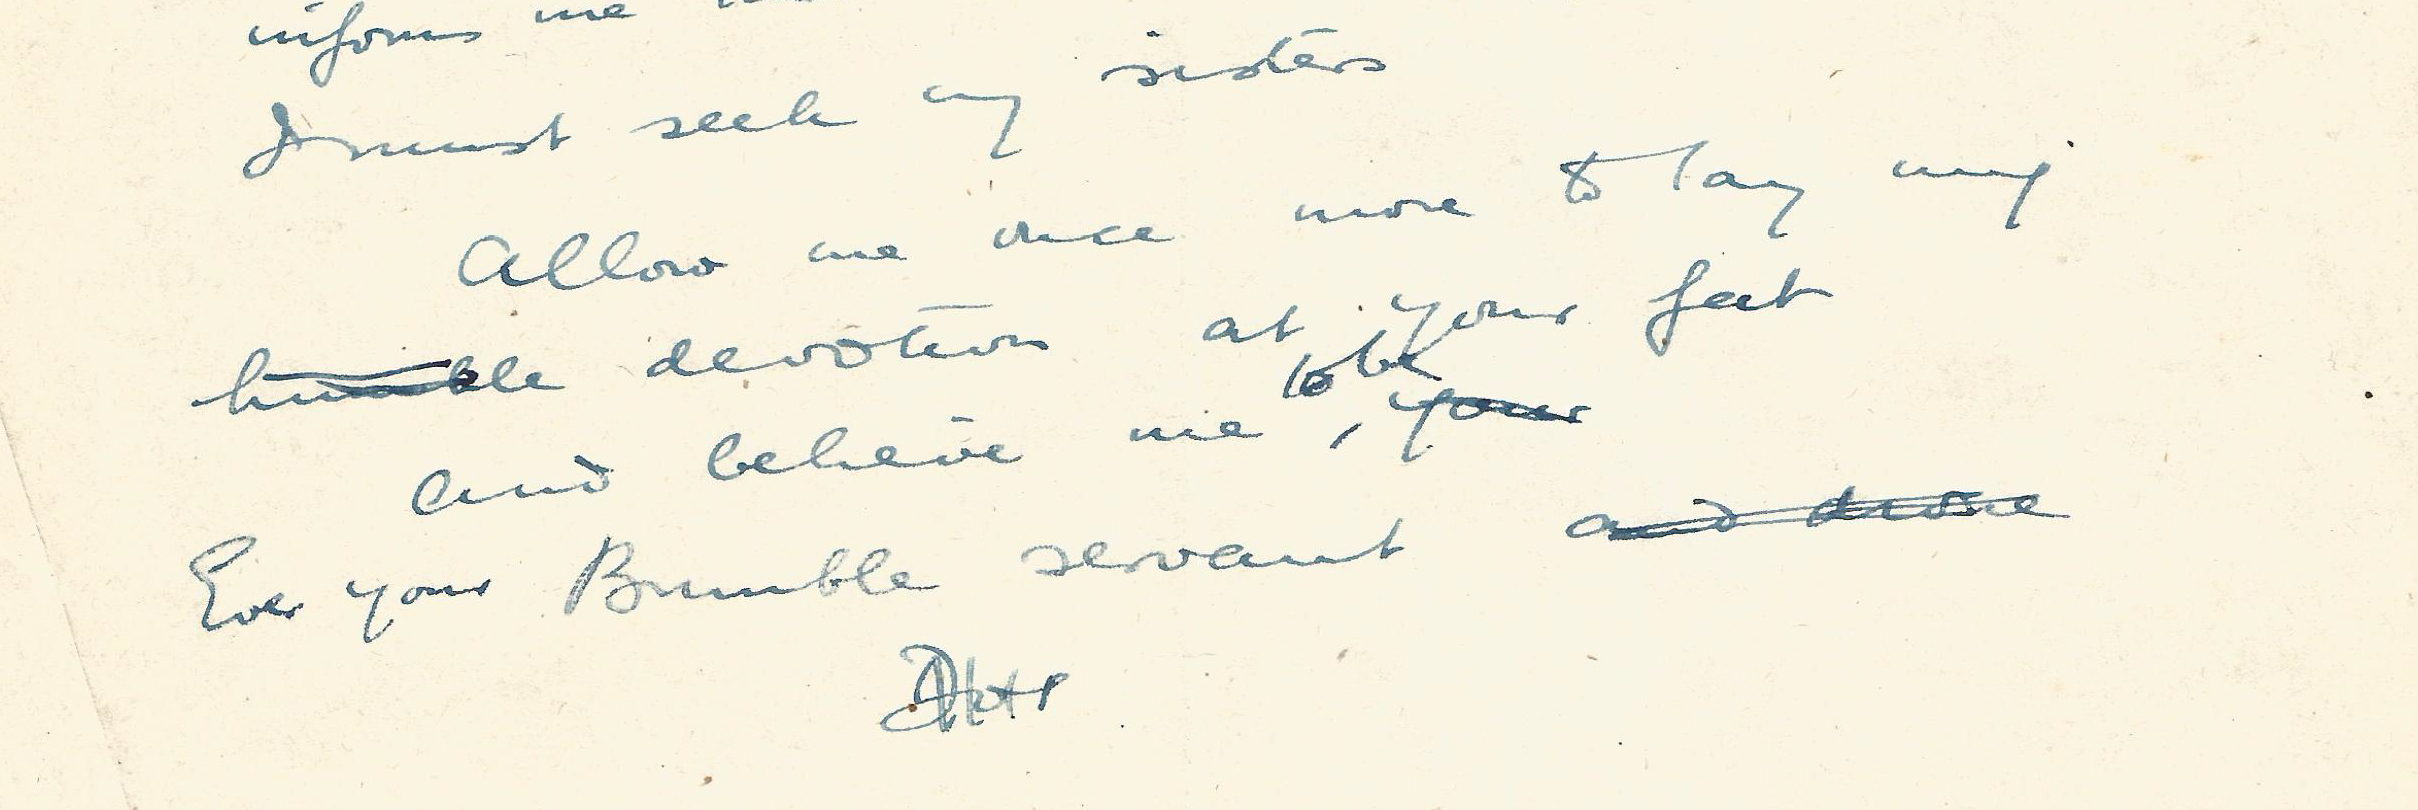 informs me
I must seek my sisters
Allow me once more to lay my
humble devotion at your feet
to be
and believe me, your
Ever your Bumble servant and drone